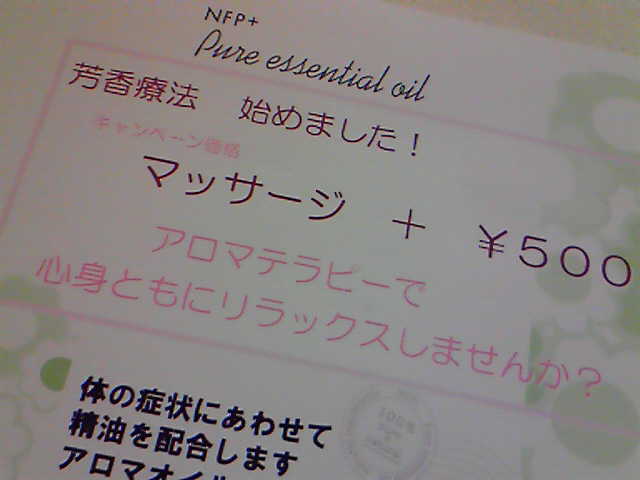 NFP+
Pure essential oil
芳香療法 始めました！
キャンペーン価格
マッサージ ＋ ￥500
アロマテラピーで
心身ともにリラックスしませんか？
体の症状にあわせて
精油を配合します
アロマオイル